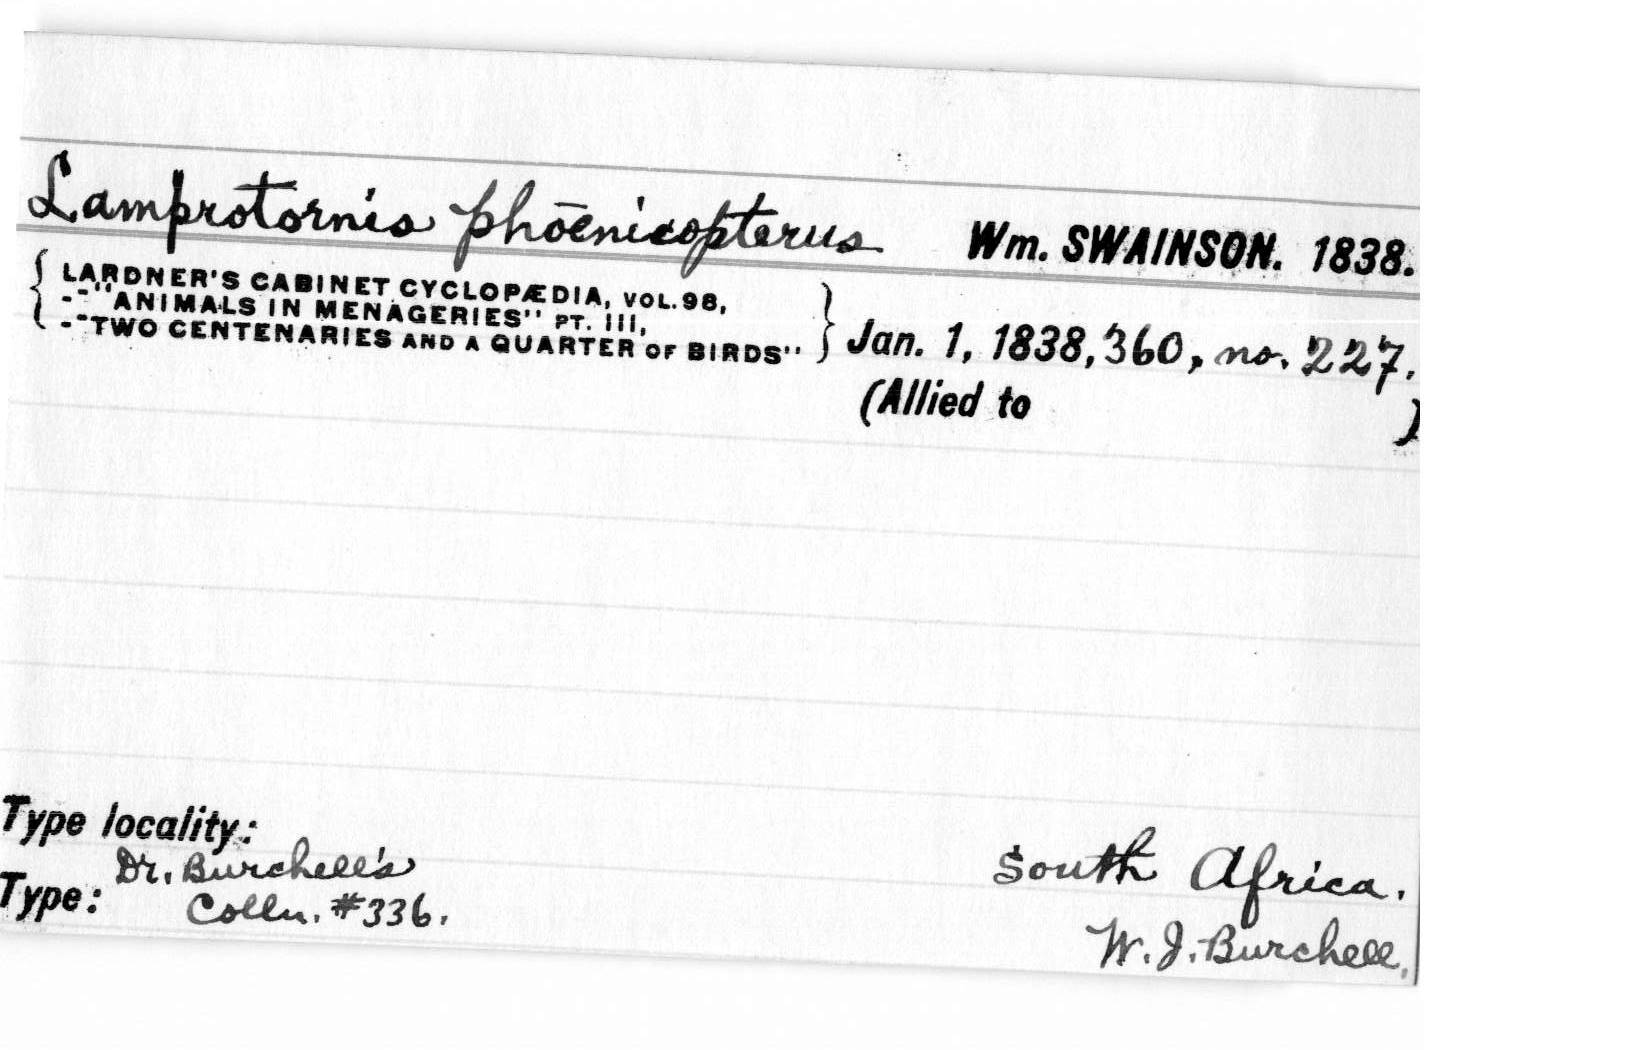 Lamprotornis phōenicopterus Wm. SWAINSON. 1838.
LARDNER'S CABINET CYCLOPÆDIA, VOL. 98,
--"ANIMALS IN MENAGERIES" PT. III,
--"TWO CENTENARIES AND A QUARTER OF BIRDS" Jan. 1, 1838, 360, no. 227.
(Allied to )
Type locality: South Africa.
Type: Dr. Burchell's
Colln. #336. W. J. Burchell.